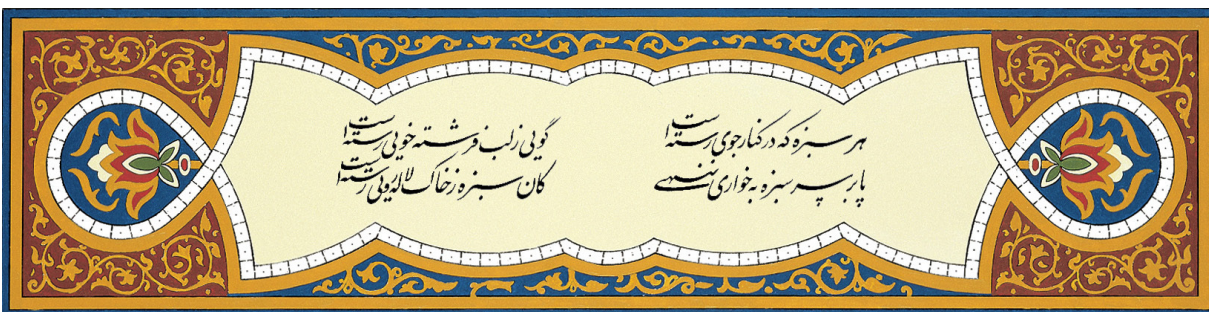 هر سبزه که در کنار جوی رسته است گویی ز لب فرشته خویی رسته است
پا بر سر سبزه به خواری ننهی کان سبزه ز خاک لاله رویی رسته است